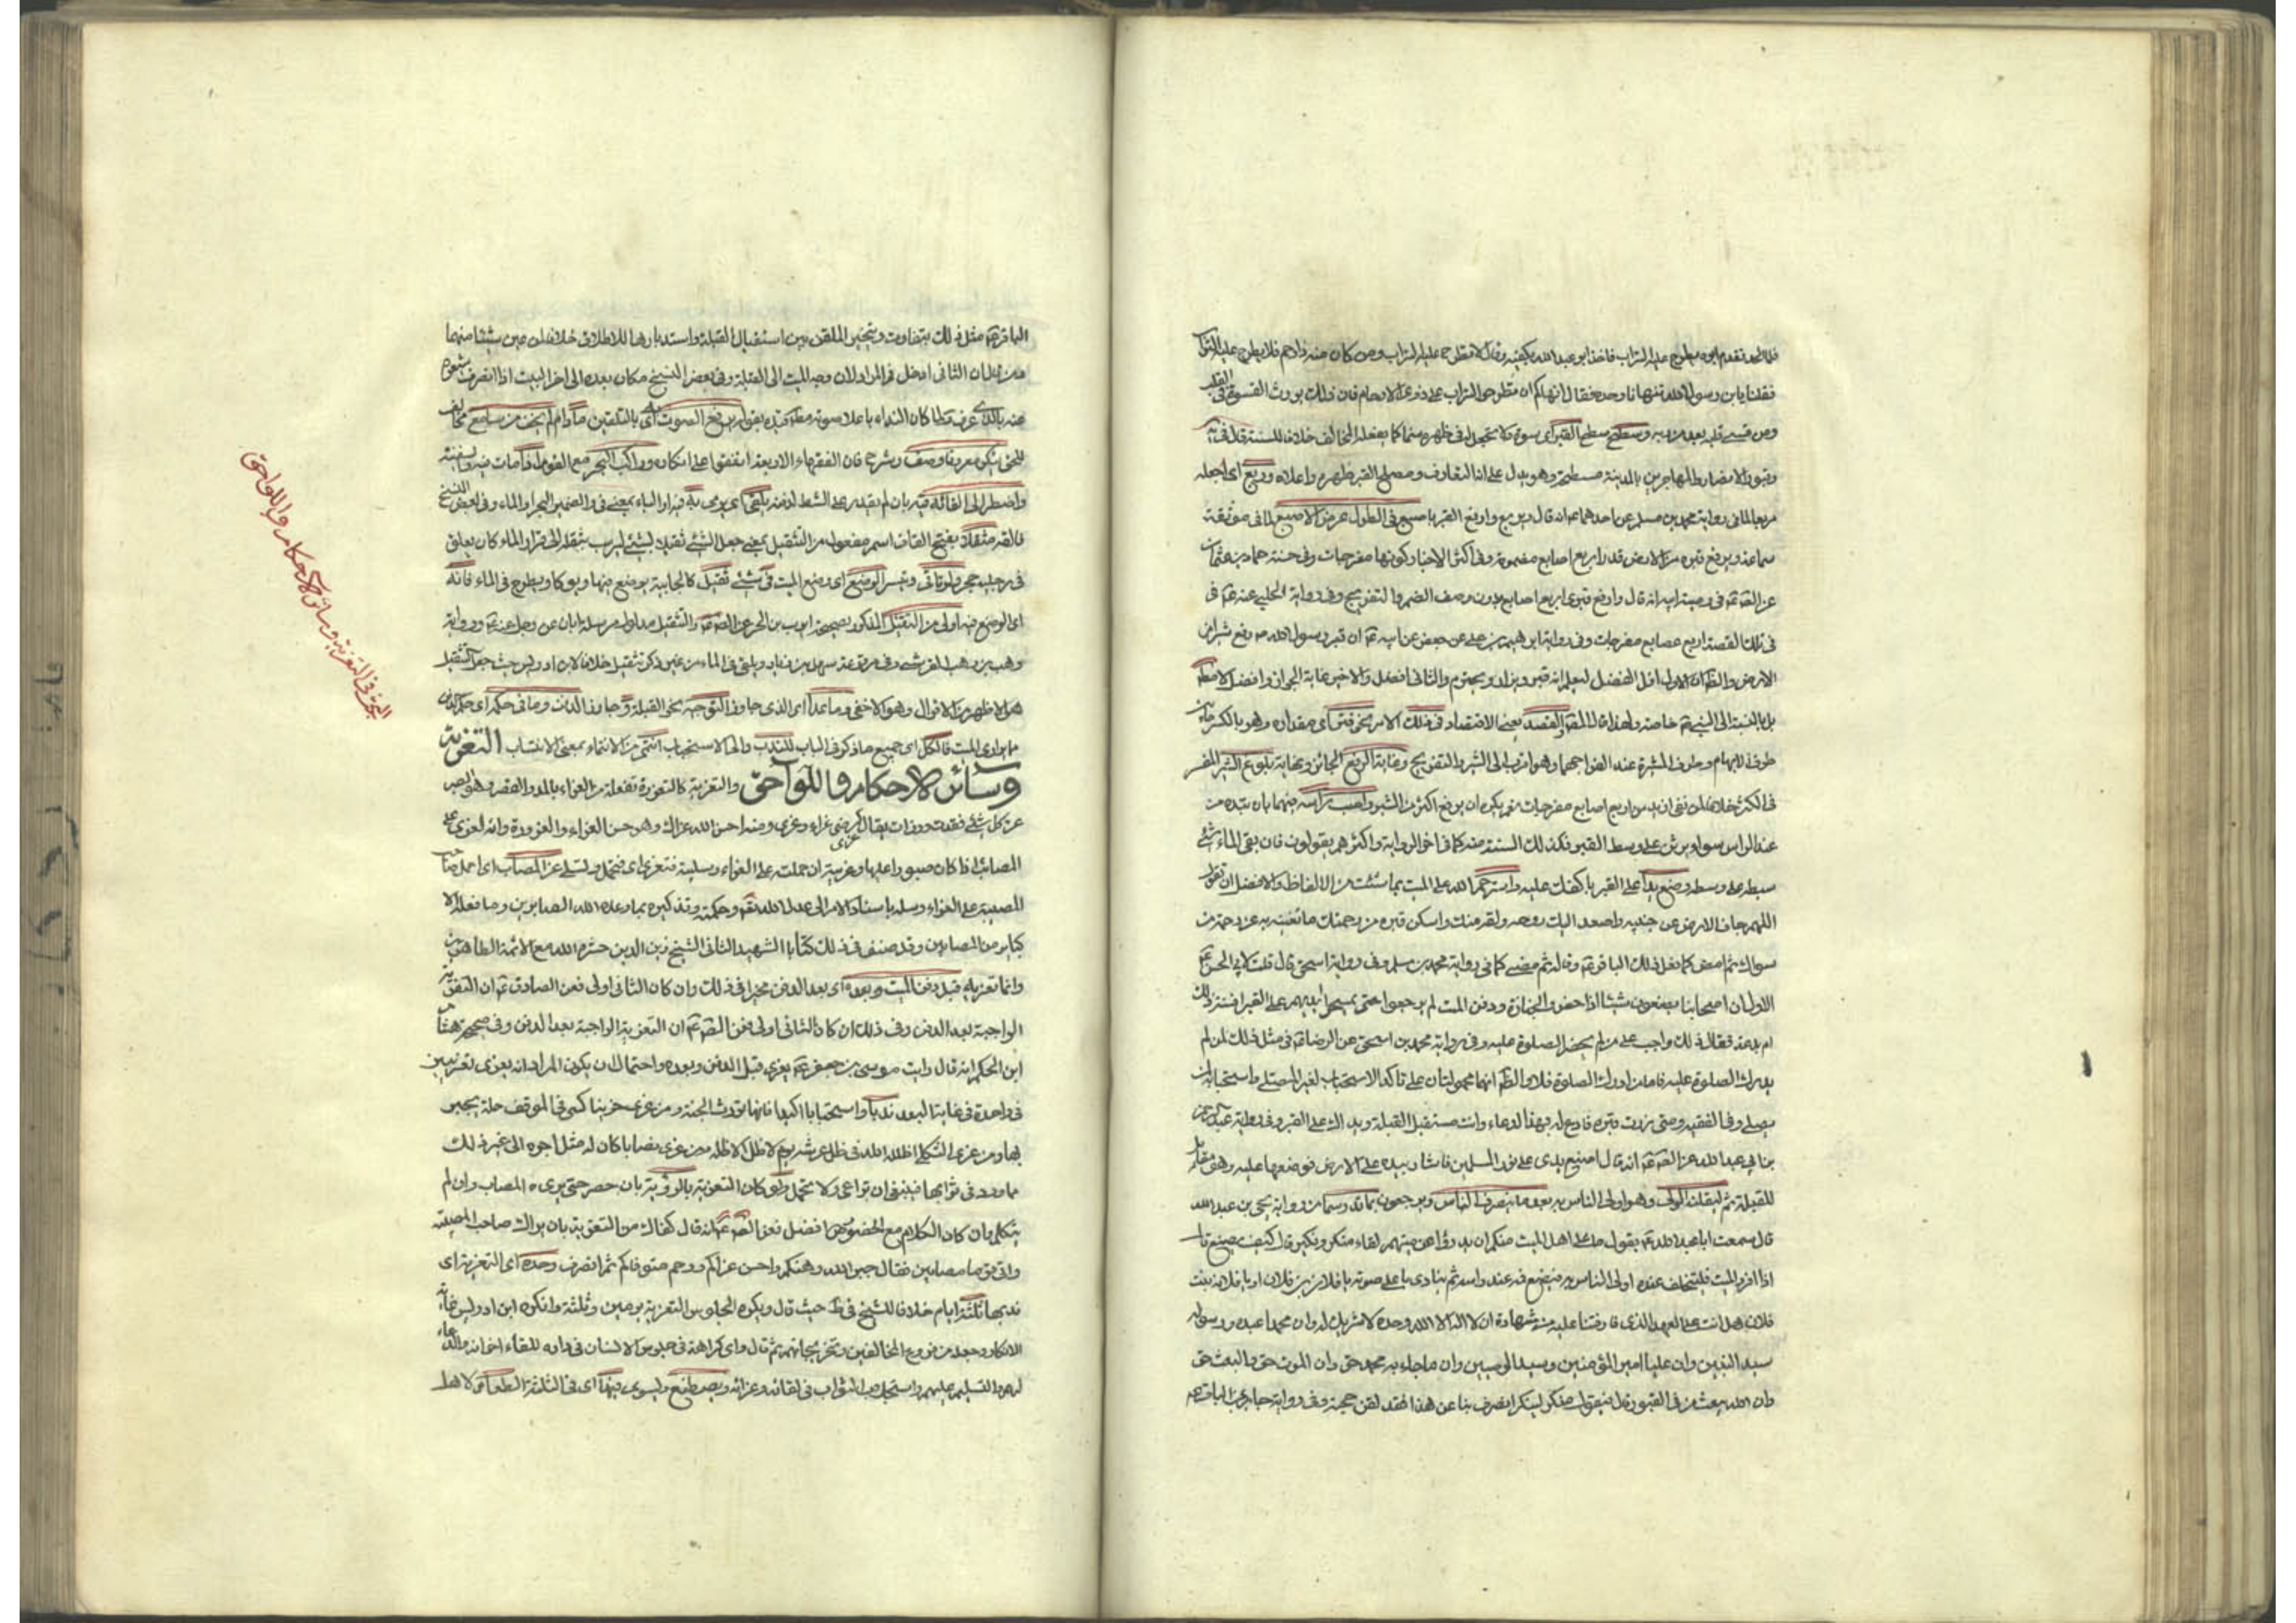 فلما لحد تقدم ابوه يطرح عليه التراب فاخذ ابو عبد الله بكفيه وقال لا تطرح عليه التراب ومن كان منه ذا رحم فلا يطرح عليه التراب
فقلنا يابن رسول الله تنهانا وحده فقال انهاكم ان تطرحوا التراب على ذوي الارحام فان ذلك يورث القسوة في القلب
ومن قسى قلبه بعد من ربه وسطح سطح القبر اى سوه ولا تجعل في ظهره سنما كما يفعله المخالف خلافا للسنة
وقبور الانصار والمهاجرين بالمدينة مسطحة وهو يدل على انه المتعارف القبر ظهره واعلاه وربع اى اجعله
مربعا لما في رواية محمد بن مسلم عن احدهما ع انه قال ويربع وارفع القبر باصبع في الطول عرض الاصبع لما في موثقة
سماعة ويرفع قبره من الارض قدر اربع اصابع مضمومة وفي اكثر الاخبار كونها مفرجات وفي حسنة حماد بن عثمان
عن الصه ع في وصية ابيه انه قال وارفع قبرى اربع اصابع بدون وصف الضم والتفريج وفي رواية الحلبي عنه ع في
في تلك القصة اربع اصابع مفرجات وفي رواية ابرهيم بن على عن جعفر عن ابيه ع ان قبر رسول الله ص رفع شبرا من
الارض والظ ان الاول اقل الفضل ليعلم انه قبر ويزار ويحترم والثاني افضل والاخير غاية الجواز وافضل لا مط
بل بالنسبة الى النبي ص خاصة ولهذا قال المص والقصد يعنى الاقتصاد في ذلك الامر نحو فتر اى مقداره وهو بالكسر ما بين
طرف الابهام وطرف المشيرة عند انفراجهما وهو اقرب الى الشبر والتفريج وغاية الرفع الجائز ونهاية بلوغ الشبر المفسر
في الكثر خلافا لمن نفى ازيد من اربع اصابع مفرجات نعم يكره ان يرفع اكثر من الشبر واصبب راسه منهما بان تبدء من
عند الراس سواء ويرش على وسط القبر فكذلك السنة منه كما في اخر الرواية واكثرهم يقولون فان بقى الماء شئ
سيطه على وسطه وضع يدا على القبر باكفك عليه واسترحم الله على الميت بما شئت من الالفاظ والافضل ان تقول
اللهم جاف الارض عن جنبيه واصعد اليك روحه ولقه منك واسكن قبره من رحمتك ما تغنيه به عن رحمة من
سواك ثم امض كما فعل ذلك الباقر ع وقاله ثم مضى كما في رواية محمد بن مسلم وفي رواية اسحق قال قلت لابي الحسن ع
الاول ان اصحابنا يصنعون شيئا اذا حضروا الجنازة ودفن الميت لم يرجعوا حتى يمسحوا ايديهم على القبر افسنة ذلك
ام بدعة فقال ذلك واجب على من لم يحضر الصلوة عليه وفي رواية محمد بن اسحق عن الرضا ع في مثل ذلك لمن لم
يدرك الصلوة عليه فاما من ادرك الصلوة فلا والظ انهما محمولتان على تاكد الاستحباب لغير المصلى واستحبابه لمن
يصلي وفي الفقيه ومتى زرت قبره فادع له بهذا الدعاء وانت مستقبل القبلة ويداك على القبر وفي رواية عبد الرحمن
بن ابي عبد الله عن الصه ع انه قال اصنع يدى على قبور المسلمين فاشار بيده على الارض فوضعها عليه وهو مقابل
للقبلة ثم ليلقنه الولى وهو اولى الناس به بعد ما ينصرف الناس ويرجعون بما قد رسما من رواية يحيى بن عبد الله
قال سمعت ابا عبد الله ع يقول ما على اهل الميت منكم ان يدرؤا عن ميتهم لقاء منكر ونكير قال كيف يصنع قال
اذا افرد الميت فليتخلف عنده اولى الناس به فيضع فمه عند راسه ثم ينادى باعلى صوته يا فلان بن فلان او يا فلانة بنت
فلان هل انت على العهد الذى فارقتنا عليه من شهادة ان لا اله الا الله وحده لا شريك له وان محمدا عبده ورسوله
سيد النبيين وان عليا امير المؤمنين وسيد الوصيين وان ما جاء به محمد حق وان الموت حق والبعث حق
وان الله يبعث من في القبور قال فيقول منكر لنكير انصرف بنا عن هذا فقد لقن حجته وفي رواية جابر عن الباقر ع
الباقر ع مثل ذلك بتفاوت ويتخير الملقن بين استقبال القبلة واستدبارها للاطلاق خلافا لمن عين شيئا منهما
الثاني ادخل في المراد لان وجه الميت الى القبلة وفي بعض النسخ مكان بعده الى اخر البيت اذا انصرف
عنه باللذى عرف ولما كان النداء باعلا صوته مط قيده بقوله يرفع الصوت اى بالتلقين ما دام لم يخف من سامع مخالف
للحق يكون معروفا وصف وشرح فان الفقهاء الاربعة اتفقوا على انكاره وراكب البحر مع القوم اذا مات فيه والسفينة
واضطر الى القائه فيه بان لم يقدر على الشط لدفنه يلقى اى يرمى به فيه او الباء بمعنى في والضمير للبحر او الماء وفي بعض النسخ
فالقه مثقلا بفتح القاف اسم مفعول من التثقيل بمعنى جعل الشئ ثقيلا بشئ ليرسب بثقله الى قرار الماء كان يعلق
في رجليه حجر ولو تاتى وتيسر الوضع اى وضع الميت في شئ ثقيل كالخابية يوضع فيها ويوكا ويطرح في الماء فانه
اى الوضع فيه اولى من التثقيل المذكور لصحيحة ايوب بن الحر عن الصه ع والتثقيل مدلول مرسلة ابان عن رجل عنه ع ورواية
وهب بن وهب القرشى وفي مرفوعة سهل بن زياد ويلقى في الماء من غير ذكر تثقيل خلافا لابن ادريس حيث جعل التثقيل
هو الاظهر من الاقوال وهو الاخفى وما عدا اى الذى جاوز التوجيه نحو القبلة وجاوز الدفن وما في حكمه اى حكم الدفن
ما يوارى الميت فالكل اى جميع ما ذكر في الباب للندب والى الاستحباب انتمى من الانتماء بمعنى الانتساب التعزية
وسائر الاحكام واللواحق والتعزية كالتعزوة تفعلة من العزاء بالمد والقصر وهو الصبر
عن كل شئ فقدت ورزات يقال عزى كرضى عزاء وعزى ومنه احسن الله عزاك وهو حسن العزاء والعزوة وانه لعزى على
المصائب اذا كان صبورا عليها وعزيته ان حملته على العزاء وسليته فتعزى اى فتجمل وتسلى عز المصاب اى احمل صاحب
المصيبة على العزاء وسله باسناد الامر الى عدل الله تع وحكمته وتذكيره بما وعده الله الصابرين وما فعله الا
كبابر من المصابين وقد صنف في ذلك كتابا الشهيد الثاني الشيخ زين الدين حشره الله مع الائمة الطاهرين
وانما تعزيه قبل دفن الميت وبعده اى بعد الدفن مخيرا في ذلك وان كان الثاني اولى فعن الصادق ع ان التعزية
الواجبة بعد الدفن وفي ذلك ان كان الثاني اولى فعن الصه ع ان التعزية الواجبة بعد الدفن وفي صحيحة هشام
ابن الحكم انه قال رايت موسى بن جعفر ع يعزى قبل الدفن وبعده واحتمال ان يكون المراد انه يعزى تعزيتين
في واحدة في غاية البعد ندبا واستحبابا اكيدا فانها تورث الجنة ومن عزى حزينا كسى في الموقف حلة يحبر
بها ومن عزى الثكلى اظله الله في ظل عرشه يوم لا ظل الا ظله ومن عزى مصابا كان له مثل اجره الى غير ذلك
مما ورد في ثوابها فينبغى ان تراعى ولا تهمل ولو كان التعزية بالرؤية بان حضر حتى يرى ه المصاب وان لم
يتكلم وان كان الكلام مع الحضور هو افضل فعن الصه ع انه قال كفاك من التعزية بان يراك صاحب المصيبة
واتى ع قوما مصابين فقال جبر الله وهنكم واحسن عزاكم ورحم متوفاكم ثم انصرف وحده اى التعزية اى
ندبها ثلثة ايام خلافا للشيخ في ط حيث قال ويكره الجلوس للتعزية يومين وثلثة وانكره ابن ادريس غاية
الانكار وجعله من فروع المخالفين وتخريجاتهم ثم قال واى كراهة في جلوس الانسان في داره للقاء اخوانه والدعاء
لهم والتسليم عليهم واستجلاب الثواب في لقائه وعزائه ويصطنع وليسوى فيها اى في الثلثة الطعام لاهل
البحث في التعزية وسائر الاحكام واللواحق